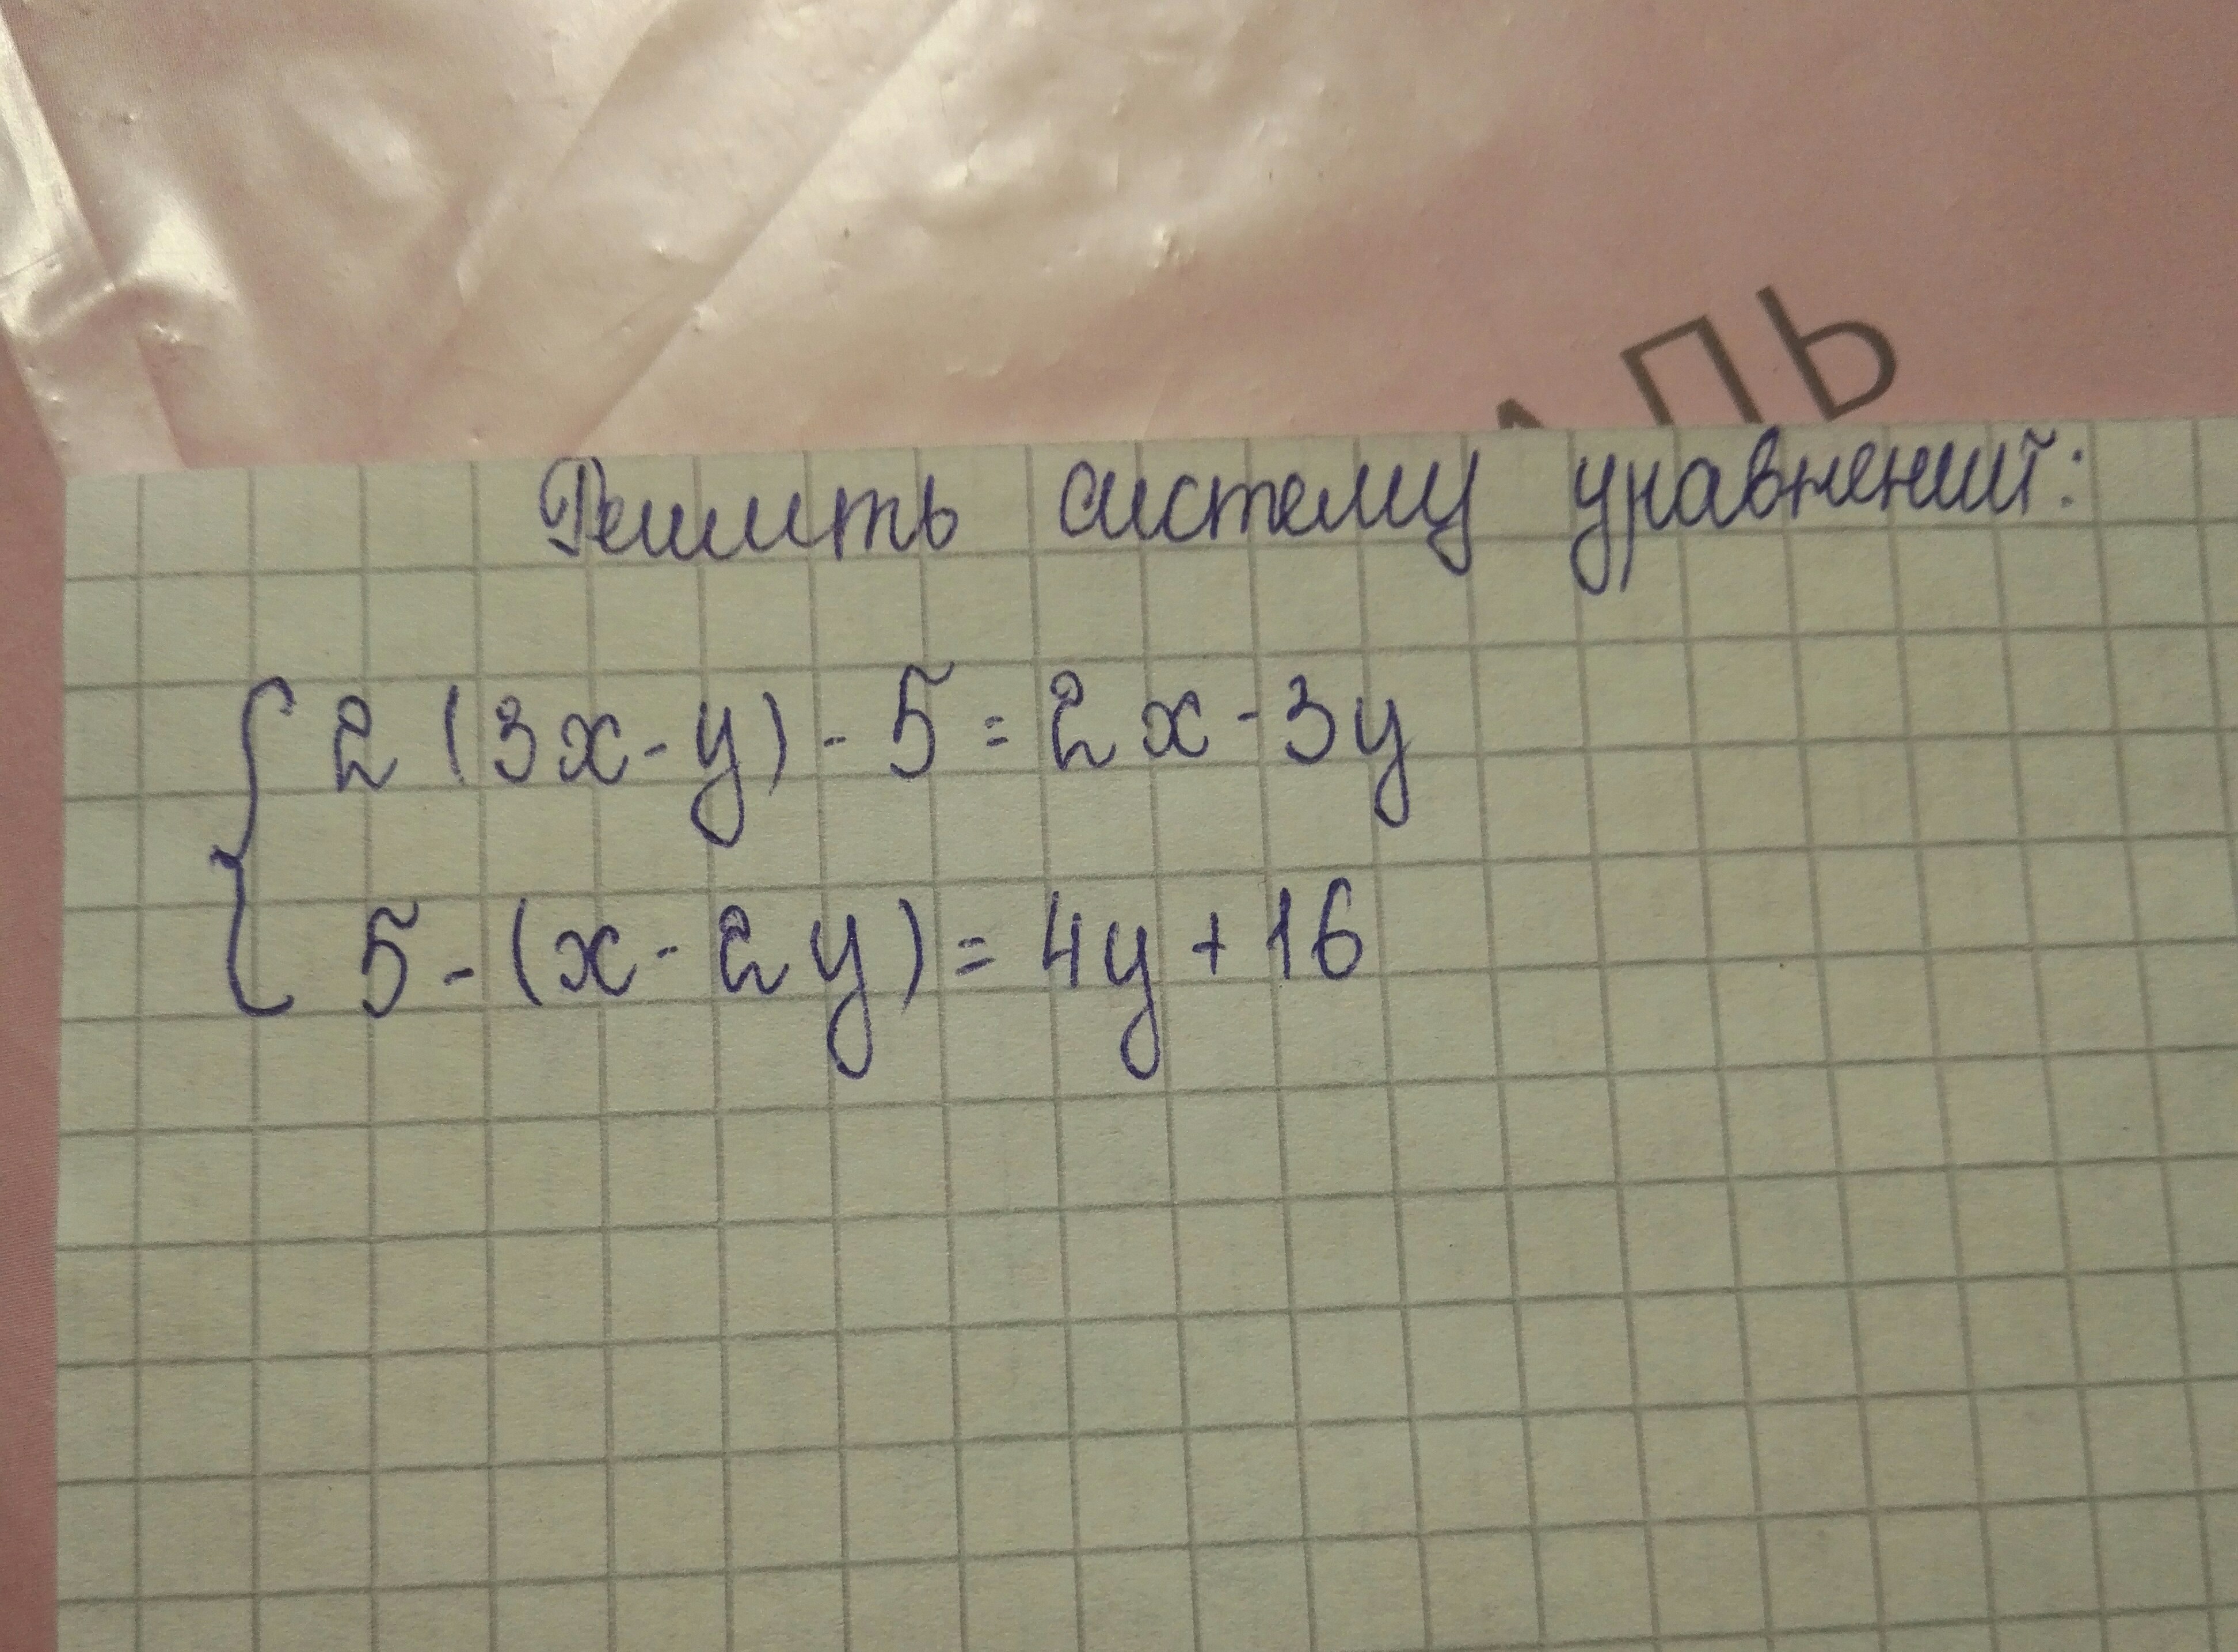 АПЬ
Решить систему уравнений:
2(3x-y)-5=2x-3y
5-(x-2y)=4y+16